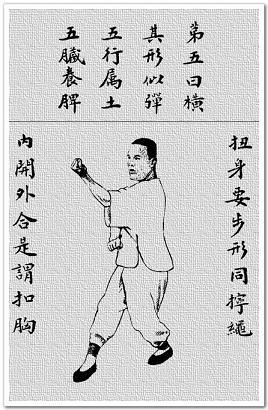 第五曰橫
其形似彈
五行屬土
五臟養脾
扭身要步形同擰繩
內開外合是謂扣胸